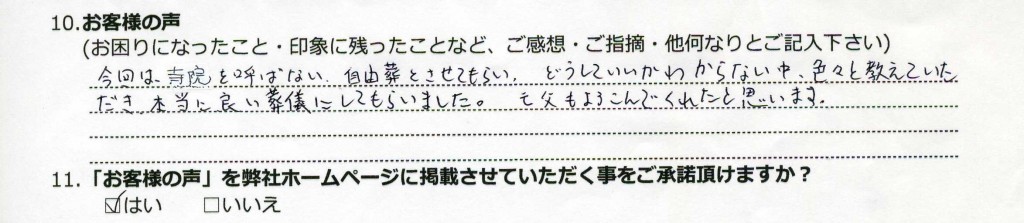 10.お客様の声
(お困りになったこと・印象に残ったことなど、ご感想・ご指摘・他何なりとご記入下さい)
今回は、寺院を呼ばない、自由葬とさせてもらい、どうしていいかわからない中、色々と教えていた
だき、本当に良い葬儀にしてもらいました。 父もよろこんでくれたと思います。
11.「お客様の声」を弊社ホームページに掲載させていただく事をご承諾頂けますか？
☑はい □いいえ